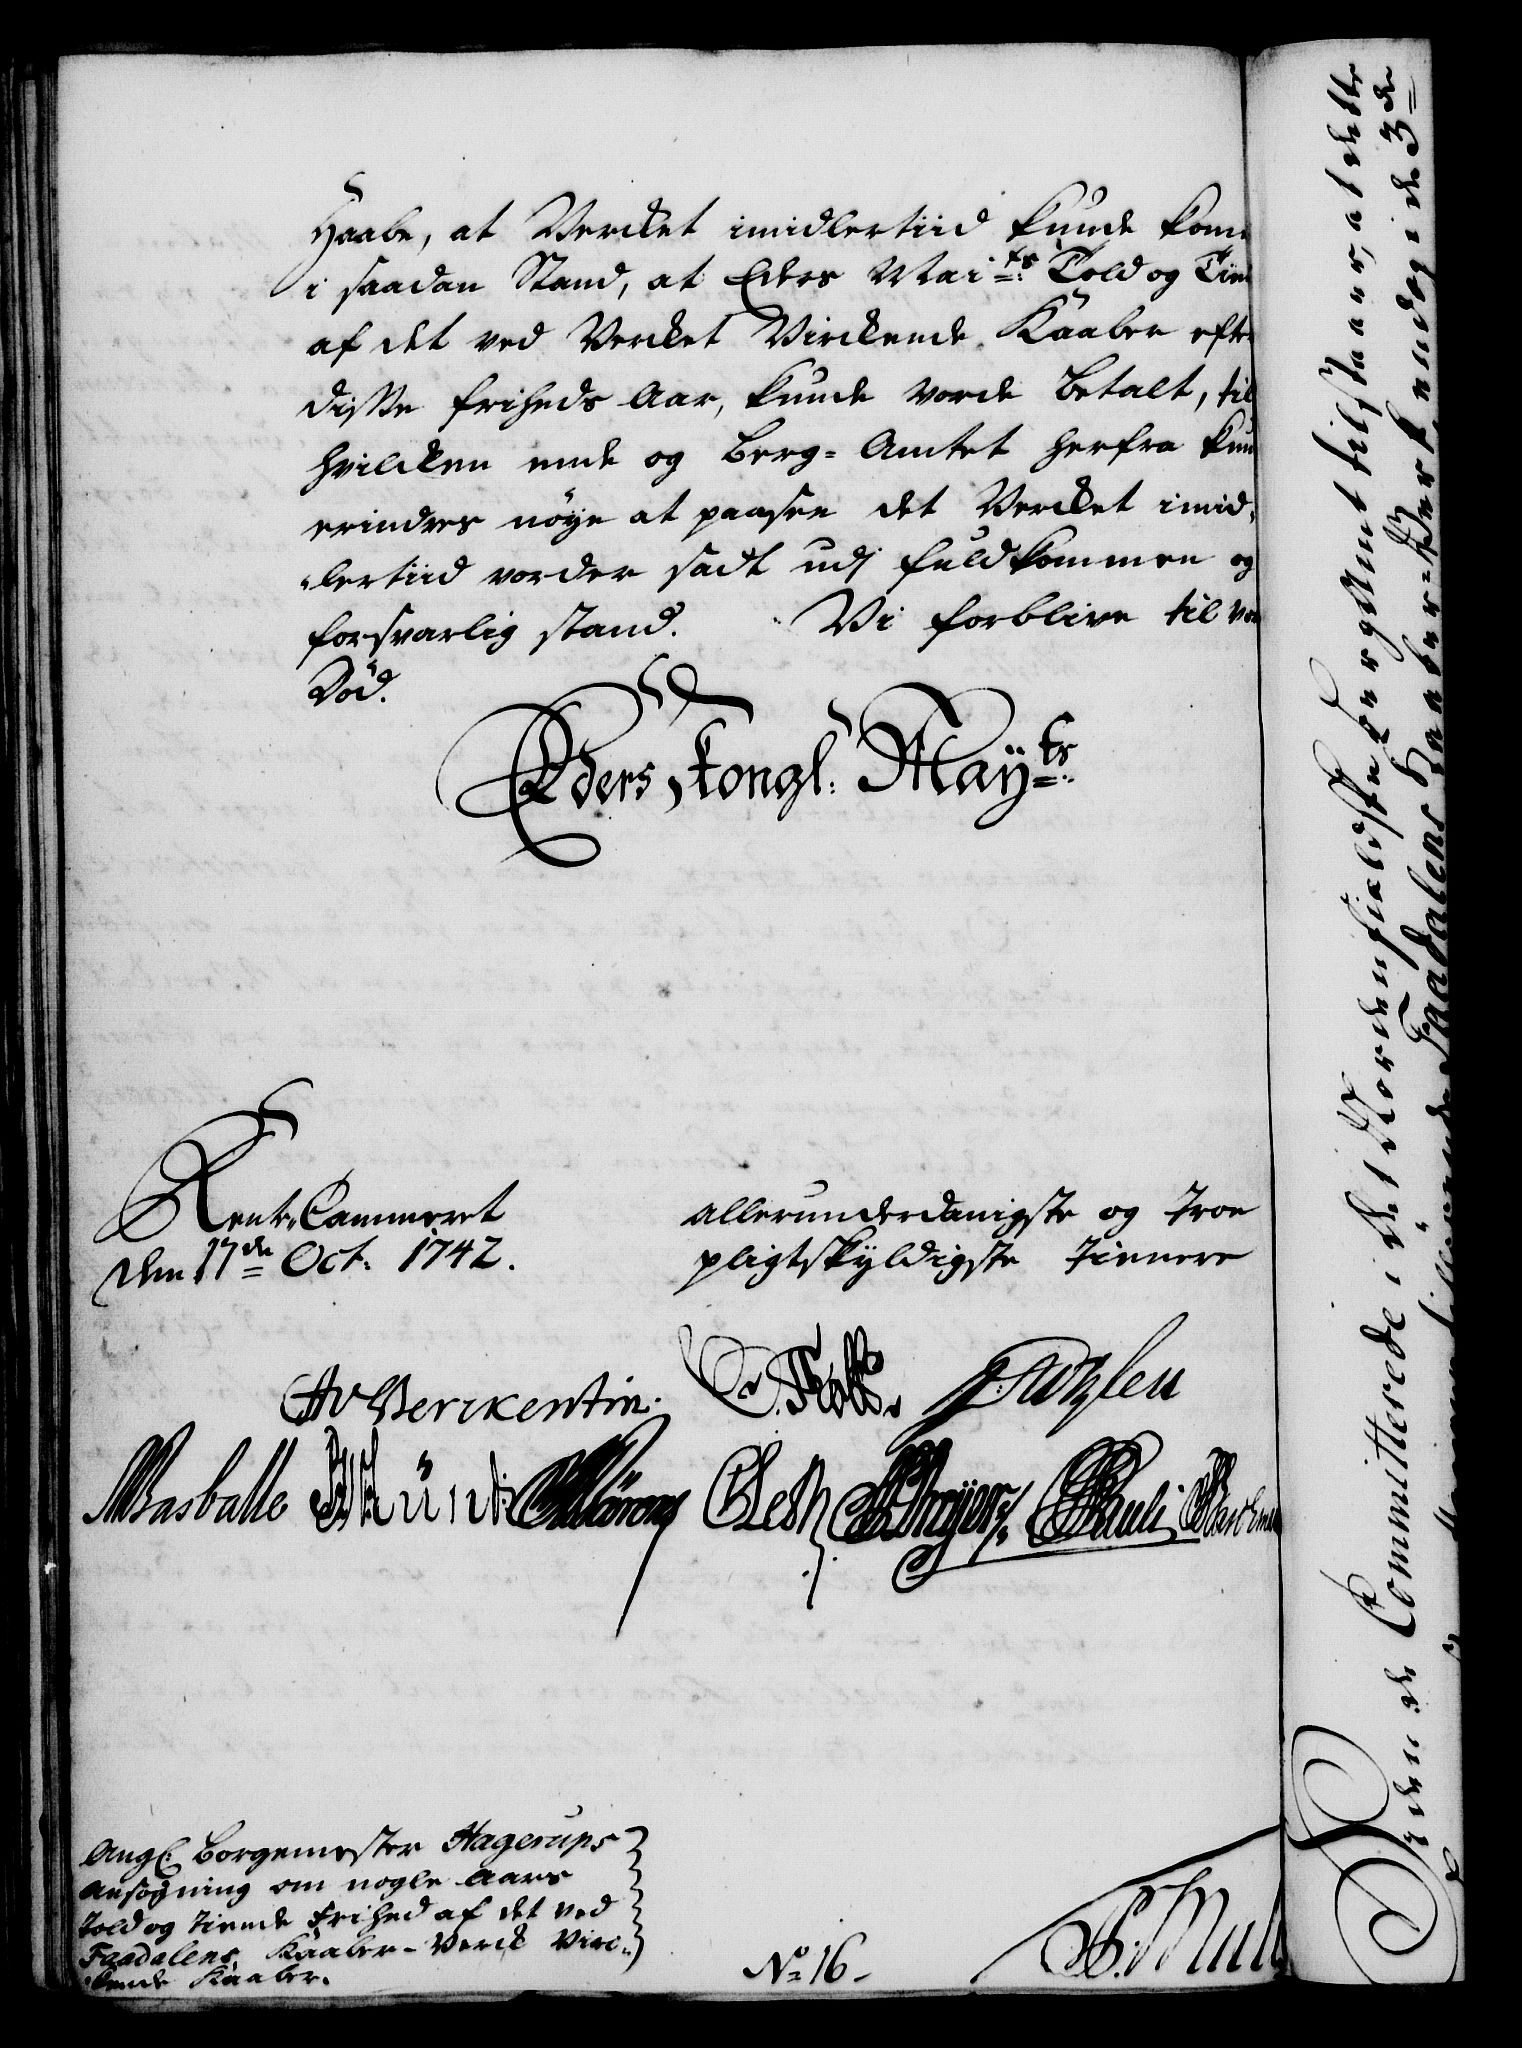 Haabe, at Vercket imidlertiid kunde kom
i saadan Stand, at Eders Mai:ts Told og Tien
af det ved Vercket Virckende Kaaber efter
disse friheds Aar, kunde vorde betalt, til
hvilcken ende og Berg=Amtet herfra kun
erindres nøye at paasee det Vercket imid,
„lertiid vorder sadt udj fuldkommen og
forsvarlig stand. Vi forblive til vor
Død.
Eders Kongl: Maÿ:ts
Rente Cammeret
den 17de Oct: 1742.
allerunderdanigste og troe
pligtskyldigste tienere
CAvBerckentin.
Masballe
Angl: borgemester Hagerups
ansøgning om nogle Aars
told og tiende frihed af det ved
Faadalens Kaaber-Verck Virc„
„kende Kaaber.
No 16-
den de Committerede i det Nordenfieldske bergAmt tilstaar, at dette
Faadalens Kaaber=Verk endog i de 3de